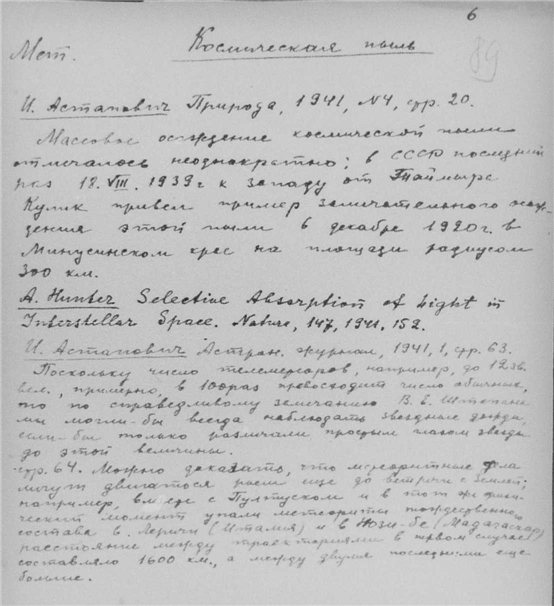 6
Мет. Космическая пыль
89
И. Астапович Природа, 1941, №4, стр. 20.
Массовое осаждение космической пыли
отмечалось неоднократно; в СССР последний
раз 18.VIII.1939г к западу от Таймыра
Кулик привел пример замечательного осаж-
дения этой пыли 6 декабря 1920г. в
Минусинском крае на площади радиусом
300 км.
A. Hunter Selective Absorption of Light in
Interstellar Space. Nature, 147, 1941, 152.
И. Астапович Астрон. журнал, 1941, 1, стр. 63.
Поскольку число телеметеоров, например, до 12 зв.
вел., примерно, в 100 раз превосходит число обычных,
то по справедливому замечанию В. Б. Штепана
мы могли-бы всегда наблюдать звездные дожди,
если-бы только различали простым глазом звезды
до этой величины.
стр. 64. Можно доказать, что метеоритные тела
могут двигаться роем еще до встречи с Землей;
например, вместе с Пултуском и в тот же физи-
ческий момент упали метеориты тождественного
состава в Леричи (Италия) и в Нози-бе (Мадагаскар)
расстояние между траекториями в первом случае
составляло 1600 км., а между двумя последними еще
больше.